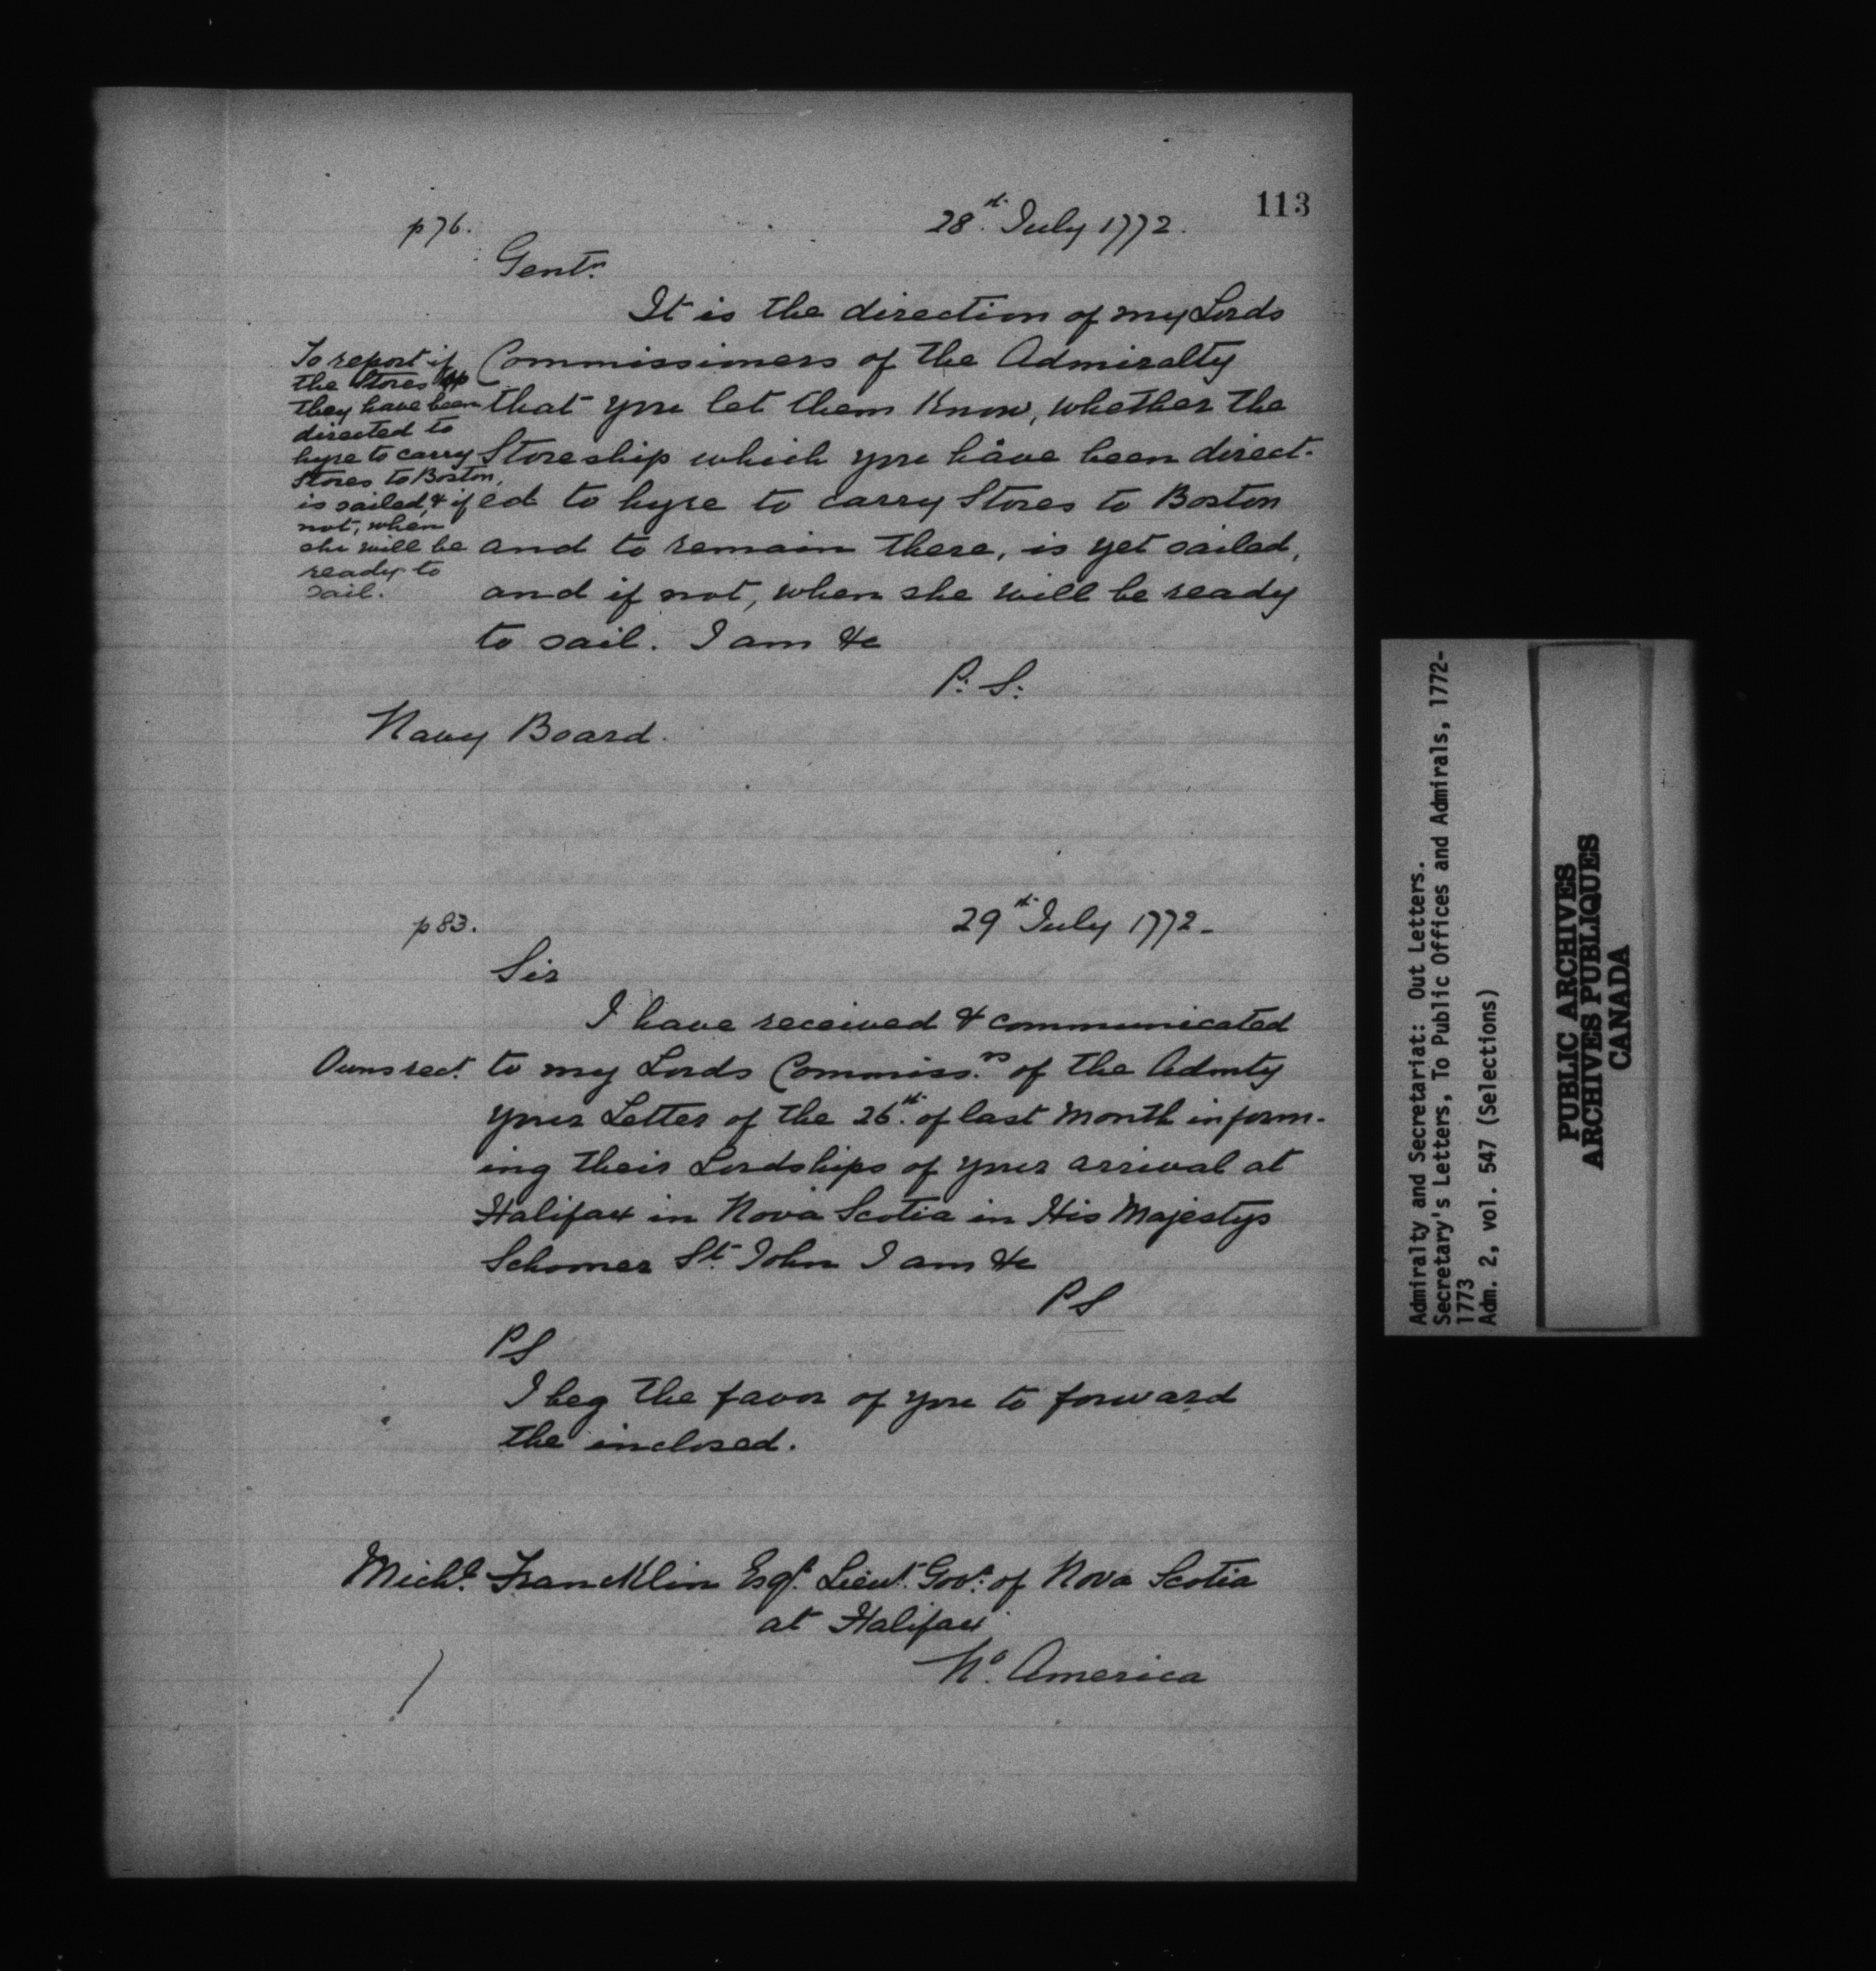 113
p 76.
28th July 1772.
Gentn.
It is the direction of my Lords
Commissioners of the Admiralty
that you let them Know, whether the
Storeship which you have been direct-
ed to hyre to carry Stores to Boston
and to remain there, is yet sailed,
and if not, when she will be ready
to sail. I am &c
P: S:
Navy Board.
To report if
the Stores
they have been
directed to
hyre to carry
Stores to Boston,
is sailed, & if
not, when
she will be
ready to
sail.
p 83.
29th July 1772-
Sir
I have received & communicated
to my Lords Commiss.rs of the Admty
your Letter of the 26th. of last Month inform-
ing their Lordships of your arrival at
Halifax in Nova Scotia in His Majestys
Schooner St. John I am &c
PS
Owns rect.
PS
I beg the favor of you to forward
the inclosed.
Michl. Francklin Esqr. Lieut. Govr. of Nova Scotia
at Halifax
No. America
Admiralty and Secretariat: Out Letters.
Secretary's Letters, To Public Offices and Admirals, 1772-
1773
Adm. 2, vol. 547 (Selections)
PUBLIC ARCHIVES
ARCHIVES PUBLIQUES
CANADA